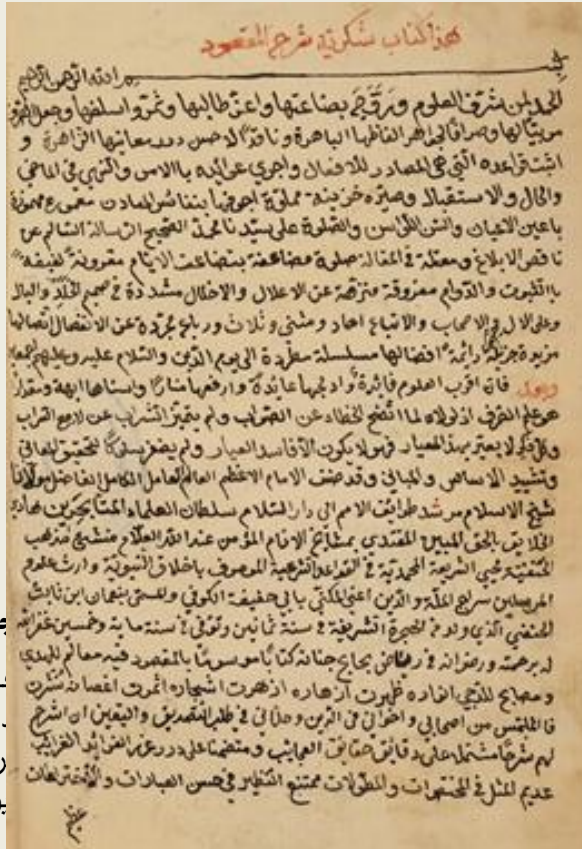 هذا كتاب شكرية شرح المقصود
بسم الله الرحمن الرحيم
الحمد لمن شرف العلوم و بضاعتها واعز طالبها وثمر واسلفها وجعل
مربيا لها وصرافا لجواهر الفاظها الباهرة وناقدا لاحسن درر معانيها الزاهرة و
اثبت قواعده التي هى المصادر للافعال واجرى عوائده بالامر والنهى فى الماضى
والحال والاستقبال وصيره خزينة مملوة اجوفها بنفائس المعادن
باعين الاعيان والصلوة على سيدنا محمد الصحيح الرسالة السالم عن
ناقص الابلاغ ومعتله فى المقالة صلوة مضاعفة بتضاعف الايام مقرونة
والدوام مفروقة منزهة عن الاعلال والاختلال مشددة فى
وعلى الال والاصحاب والاتباع احاد ومثنى وثلاث ورباع مجردة عن الانفصال اتصالها
مزيدة افضالها مسلسلة مطردة الى يوم الدين والسلام عليه وعليهم
وبعد فان اقرب العلوم فائدة عايدة وارفعها منارا واسناها ابهة ومقدارا
هو علم الصرف اذ لولاه لما اتضح الخطاء عن الصواب ولم يتميز الشراب عن لامع السراب
وكل فكر لا يعتبر بهذا المعيار فهو لا يكون الا فاسد العيار ولم لتحقيق المعانى
وتشييد الاسامى والمبانى وقد صنف الامام الاعظم العالم العامل الكامل الفاضل مولانا
شيخ الاسلام مرشد طوايف الامم الى دار السلام سلطان العلماء هادى
الخلايق بالحق المبين المقتدى بمشايخ الانام المؤمن عند الله العلام
الحنفية محيى الشريعة المحمدية فى القواعد الشرعية الموصوف باخلاق النبوية وارث علوم
المرسلين سراج الملة والدين اعنى المكنى بابى حنيفة الكوفى والمسمى بنعمان ابن ثابت
الحنفى الذى ولد فى الهجرة الشريفة فى سنة ثمانين وتوفى فى سنة ماية وخمسين غفر الله
له برحمته ورضوانه فى رياض جنانه كتابا موسوما بالمقصود فيه معالم للهدى
ومصابح للدجى انواره ظهرت ازهاره ازهرت اشجاره اثمرت اغصانه
فالملتمس من اصحابى واخوانى فى الدين وخلانى فى طلب التصديق واليقين ان اشرح
لهم شرحا مشتملا على دقايق حقايق العجايب ومتضمنا على درر غرر الفوائد الغرائب
عديم المثل فى المختصرات والمطولات ممتنع النظير فى حسن العبارات